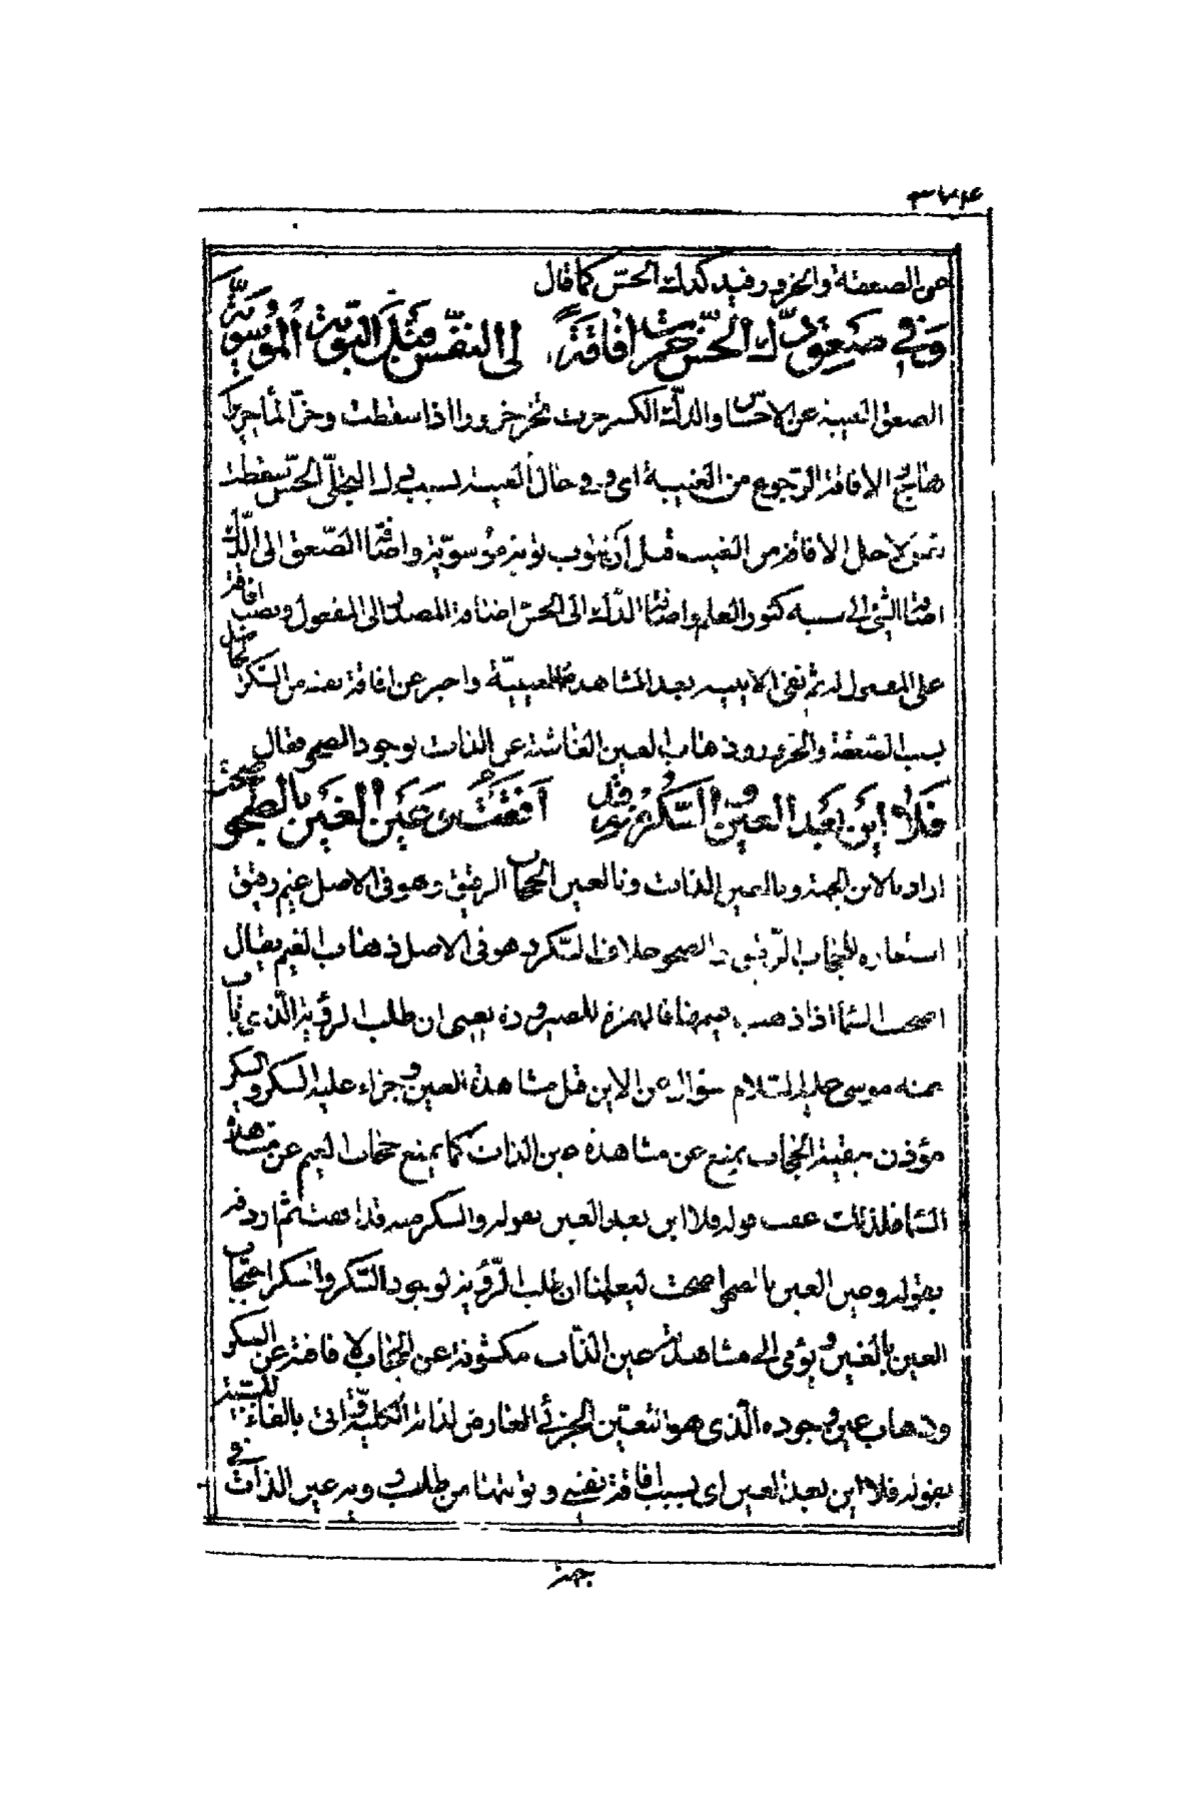 هى الصعقة والخرور وفيه كدك الحس كما قال
وفي صعق دك الحس خرت افاقة لى النفس قبل التوبة الموسوية
الصعق الغيبة عن الاحساس والدك الكسر خرت تخر خرورا اذا سقطت
الافاقة الرجوع من الغيبة اى وفى حال الغيبة بسبب دك التجلى الحس سقطت
لاجل الافاقة من الغيب قبل ان يتوب توبة موسوية واضاف الصعق الى الدك
اضافة الشئ الى سببه كنور العلم واضافة الدك الى الحس اضافة المصدر الى المفعول ونصب افاقة
على المفعول له ثم نفى الاينية بعد المشاهدة العينية واخبر عن افاقة نفسه من السكر
بسبب الصعقة والخرور وذهاب العين الغاشية عن الذات بوجود الصحو فقال
فلا اين بعد العين والسكر منه قد افقت وعين الغين بالصحو اصحت
اراد بالاين الجهة وبالعين الذات وبالغين الحجاب الرقيق وهو فى الاصل غيم رقيق
استعاره للحجاب الرقيق والصحو خلاف السكر وهو فى الاصل ذهاب الغيم يقال
اصحت السماء اذا ذهب غيمها فالهمزة للصيرورة يعنى ان طلب الرؤية الذى تاب
عنه موسى عليه السلام سؤال عن الاين قبل مشاهدة العين وجزاء عليه السكر والسكر
مؤذن ببقية الحجاب يمنع عن مشاهدة عين الذات كما يمنع حجاب الغيم عن مشاهدة
السماء فلذلك عقب قوله فلا اين بعد العين بقوله والسكر منه قد افقت ثم اردفه
بقوله وعين الغين بالصحو اصحت ليعلمنا ان طلب الرؤية لوجود السكر والسكر احتجاب
العين بالغين ويؤمى الى مشاهدة عين الذات مكشوفة عن الحجاب لافاقته عن السكر
وذهاب عين وجوده الذى هو التعين الجزئى العارض لذاته الكلية واتى بالفاء للسببية
بقوله فلا اين بعد العين اى بسبب افاقة نفسى وتوبتها من طلب رؤية عين الذات فى
جهة